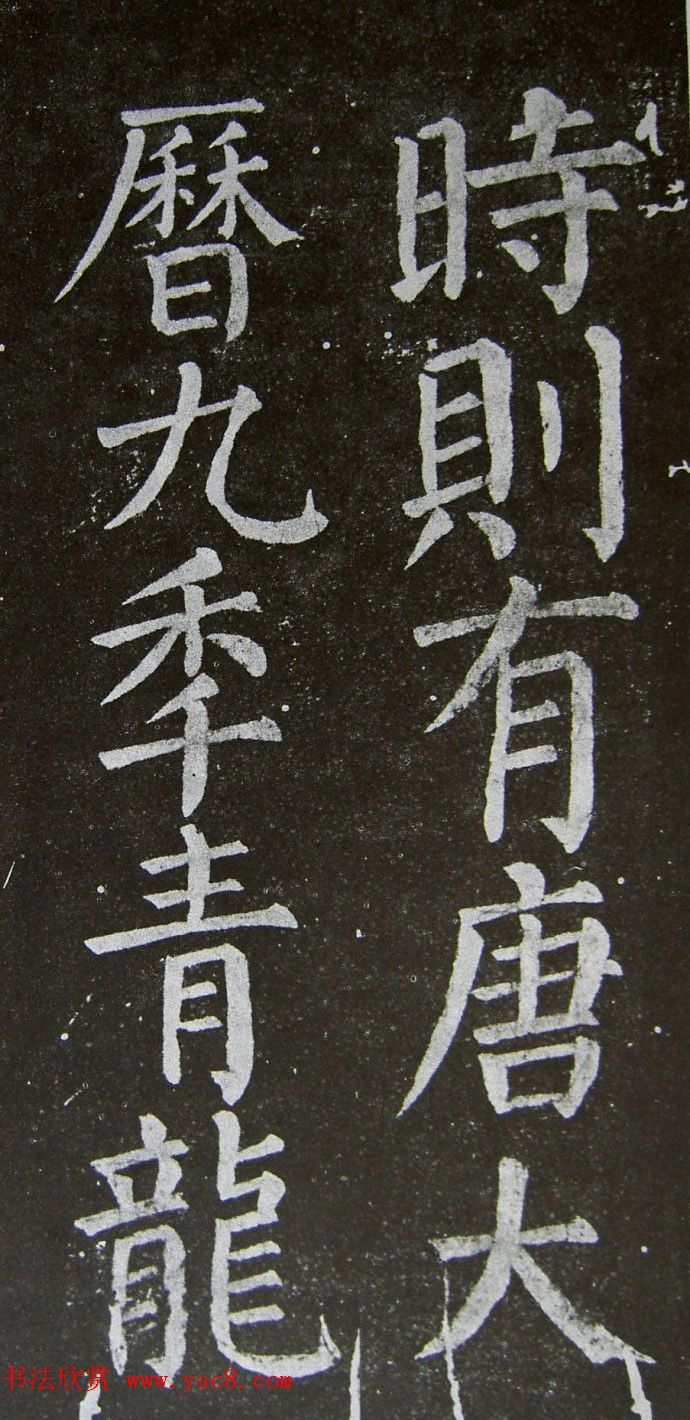 時則有唐大
曆九秊青龍
书法欣赏 www.yac8.com